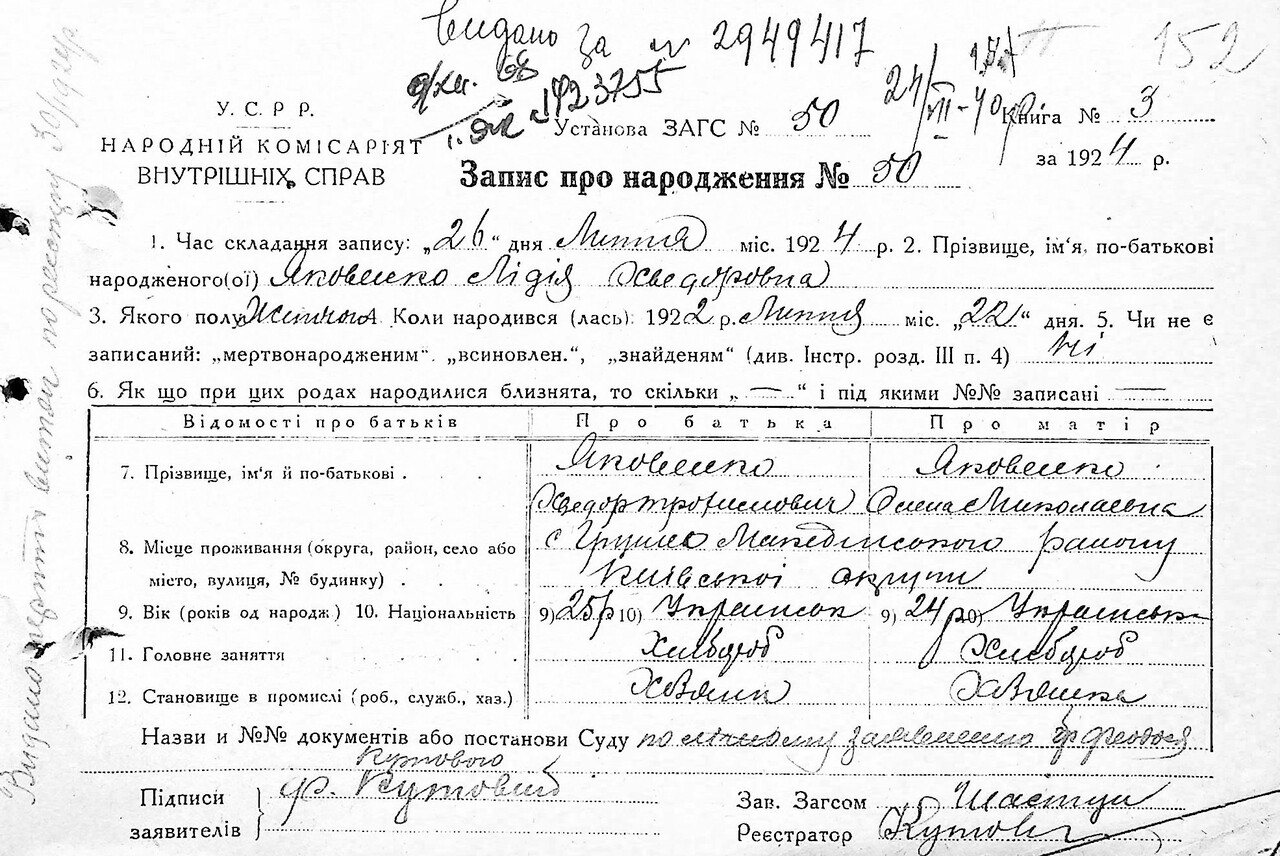 Видано за № 2949417
152
У. С. Р. Р.
НАРОДНІЙ КОМІСАРІЯТ
ВНУТРІШНІХ СПРАВ
Установа ЗАГС № 50
Книга № 3
за 1924 р.
Запис про народження № 50
1. Час складання запису: „26“ дня Липня міс. 1924 р. 2. Прізвище, ім'я, по-батькові
народженого(ої) Яковенко Лідія Хведоровна
3. Якого полу Жіночого 4. Коли народився (лась): 1922 р. Липня міс. „22“ дня. 5. Чи не є
записаний: „мертвонародженим“, „всиновлен.“, „знайденям“ (див. Інстр. розд. III п. 4) Ні
6. Як що при цих родах народилися близнята, то скільки „—“ і під якими №№ записані —
Відомості про батьків Про батька Про матір
7. Прізвище, ім'я й по-батькові . Яковенко Яковенко
Хведор Трохимович Олена Миколаевна
8. Місце проживання (округа, район, село або с Грузька Макарівського району
місто, вулиця, № будинку) . . Київської округи
9. Вік (років од народж.) 10. Національність 9) 25 р 10) Украинськ 9) 24 р 10) Украинськ
11. Головне заняття Хлібороб Хлібороб
12. Становище в промислі (роб., служб., хаз.) Хозяин Хозяика
Назви и №№ документів або постанови Суду по заявлению гр Феодося
Кутового
Підписи
заявителів Ф. Кутовий
Зав. Загсом
Реєстратор Кутови